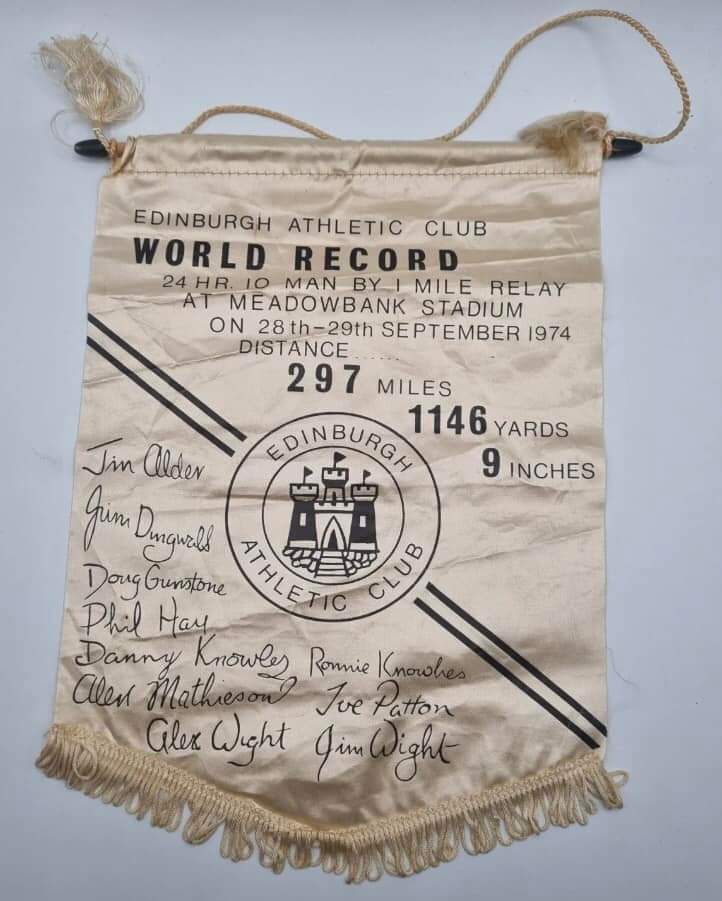 EDINBURGH ATHLETIC CLUB
WORLD RECORD
24 HR. 10 MAN BY 1 MILE RELAY
AT MEADOWBANK STADIUM
ON 28th-29th SEPTEMBER 1974
DISTANCE......
297 MILES
1146 YARDS
9 INCHES
EDINBURGH
ATHLETIC CLUB
Jim Alder
Jim Dingwall
Doug Gunstone
Phil Hay
Danny Knowles Ronnie Knowles
Alex Mathieson Joe Patton
Alex Wight Jim Wight